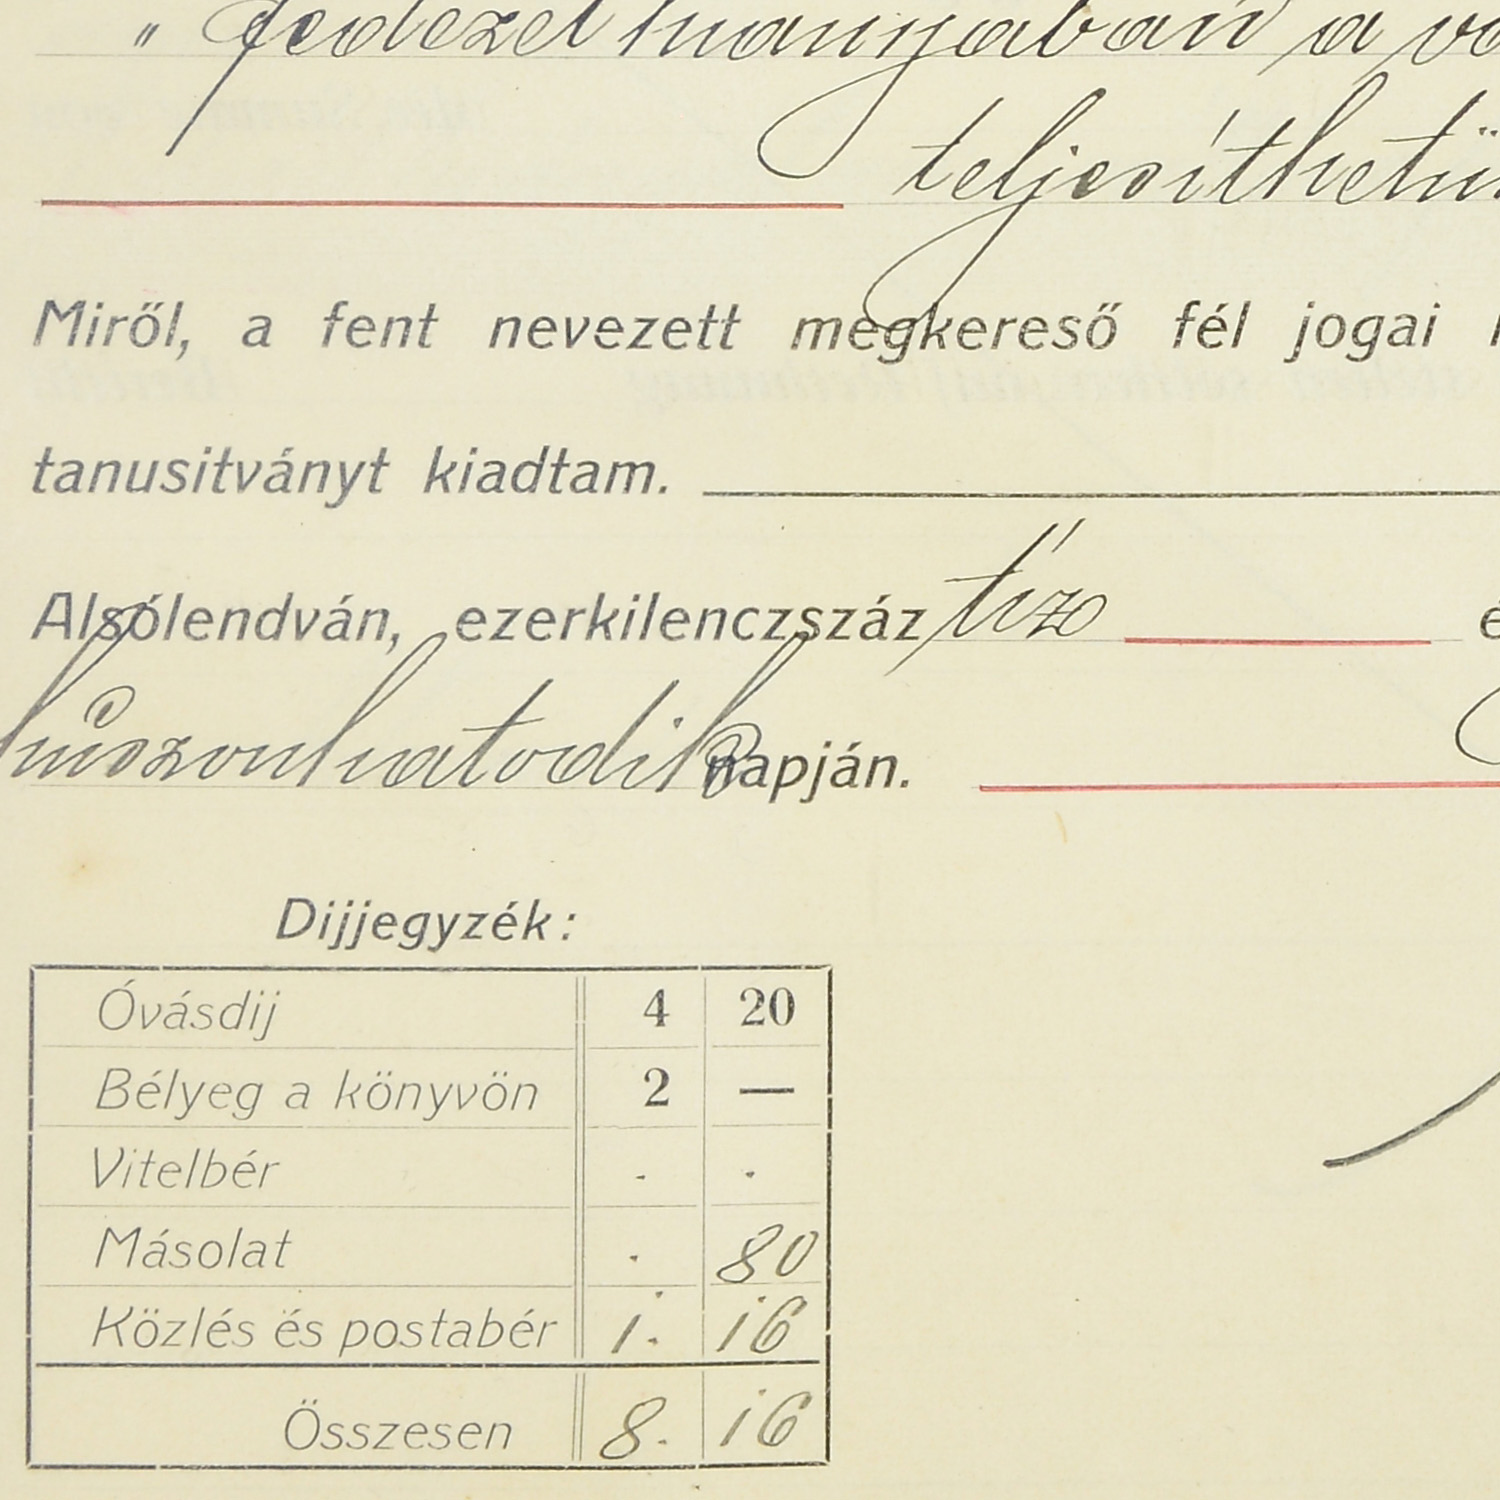 " fedezet hiányában a
teljesíthetü
Miről, a fent nevezett megkereső fél jogai
tanusitványt kiadtam.
Alsólendván, ezerkilenczszáz tíz
huszonhatodik napján.
Dijjegyzék:
Óvásdij 4 20
Bélyeg a könyvön 2 —
Vitelbér - .
Másolat . 80
Közlés és postabér 1. 16
Összesen 8. 16